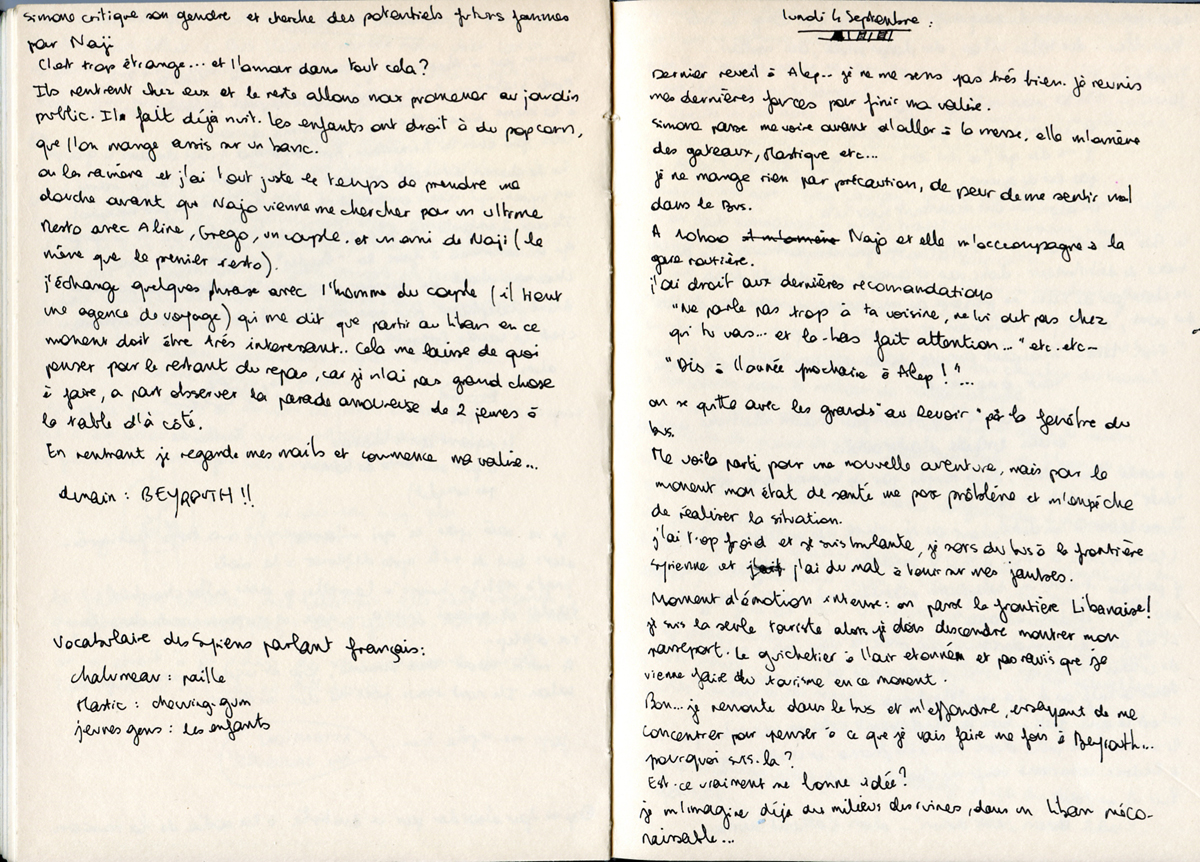 Simone critique son gendre et cherche des potentiels futurs femmes
par Naji
C'est trop étrange... et l'amour dans tout cela?
Ils rentrent chez eux et le reste allons nous promener au jardin
public. Il fait déjà nuit. les enfants ont droit à du pop corn,
que l'on mange assis sur un banc.
on les ramène et j'ai tout juste le temps de prendre une
douche avant que Najo vienne me chercher pour un ultime
resto avec Aline, Grego, un couple. et un ami de Naji (le
même que le premier resto).
j'échange quelques phrase avec l'homme du couple (il tient
une agence de voyage) qui me dit que partir au liban en ce
moment doit être très interessant.. Cela me laisse de quoi
penser pour le restant du repas, car je n'ai pas grand chose
à faire, a part observer la parade amoureuse de 2 jeunes à
la table d'à côté.
En rentrant je regarde mes mails et commence ma valise...
demain : BEYROUTH !!
Vocabulaire des Syriens parlant français:
chalumeau : paille
Mastic : chewing-gum
jeunes gens : les enfants
lundi 4 Septembre :
Dernier reveil à Alep.. je ne me sens pas très bien. Je réunis
mes dernières forces pour finir ma valise.
Simone passe me voire avant d'aller à la messe, elle m'amène
des gateaux, Mastique etc...
je ne mange rien par précaution, de peur de me sentir mal
dans le Bus.
A 10h00 et m'amène Najo et elle m'accompagne à la
gare routière.
j'ai droit aux dernières recomandations
"Ne parle pas trop à ta voisine, ne lui dit pas chez
qui tu vas... et là-bas fait attention..." etc.etc..
"Dis à l'année prochaine à Alep !"...
on se quitte avec les grands "au revoir" par la fenêtre du
bus.
Me voila parti pour une nouvelle aventure, mais pour le
moment mon état de santé me pose problème et m'empêche
de réaliser la situation.
j'ai trop froid et je suis brulante, je sors du bus à la frontière
Syrienne et j'ai du mal à tenir sur mes jambes.
Moment d'émotion intense : on passe la frontière Libanaise!
je suis la seule touriste alors je dois descendre montrer mon
passeport. Le guichetier à l'air etonném et pas ravis que je
vienne faire du tourisme en ce moment.
Bon... je remonte dans le bus et m'effondre, essayant de me
concentrer pour penser à ce que je vais faire une fois à Beyrouth...
pourquoi suis-la?
Est-ce vraiment une bonne idée?
je m'imagine déjà au milieu des ruines, dans un liban méco-
naissable...